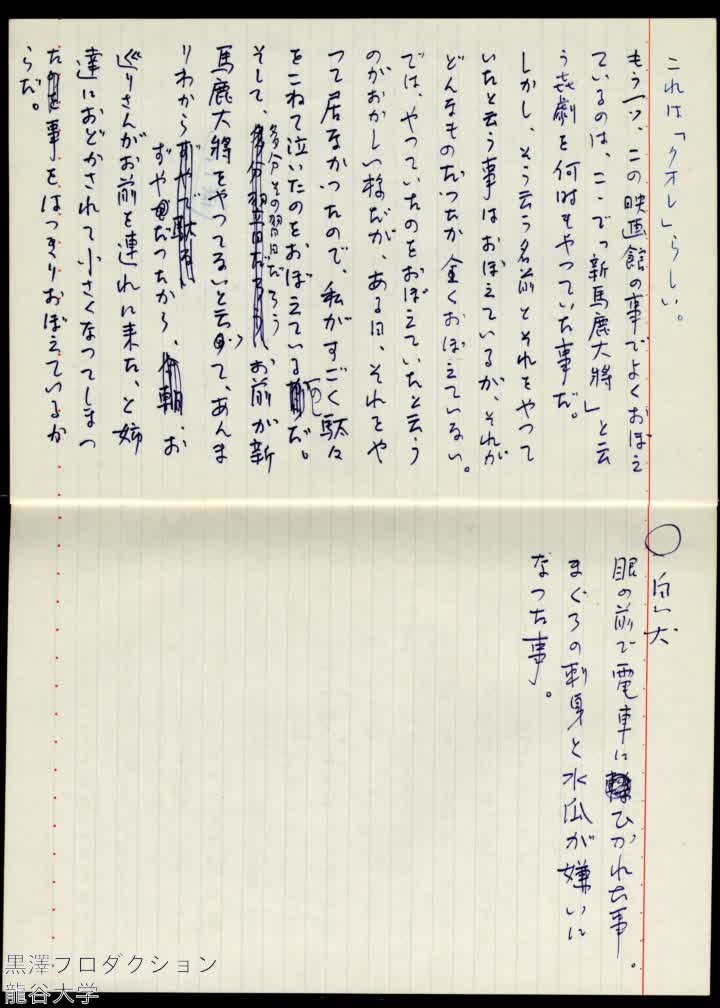 これは「クオレ」らしい。
もう一ツ、この映画館の事でよくおぼえ
ているのは、こゝで「新馬鹿大將」と云
う喜劇を何時もやつていた事だ。
しかし、そう云う名前とそれをやつて
いたと云う事はおぼえているが、それが
どんなものだつたか全くおぼえていない。
では、やつていたのをおぼえていたと云う
のがおかしい様だが、ある日、それをや
つて居なかつたので、私がすごく駄々
をこねて泣いたのをおぼえているのだ。
そして、多分その翌日だろう、お前が新
馬鹿大將をやつてるいと云つて、あんま
りわからずやだつたから、お
巡りさんがお前を連れに来た、と姉
達におどかされて小さくなつてしまつ
た事をはつきりおぼえているか
らだ。
○白い犬
眼の前で電車にひかれた事。
まぐろの刺身と水瓜が嫌いに
なつた事。
黒澤プロダクション
龍谷大学